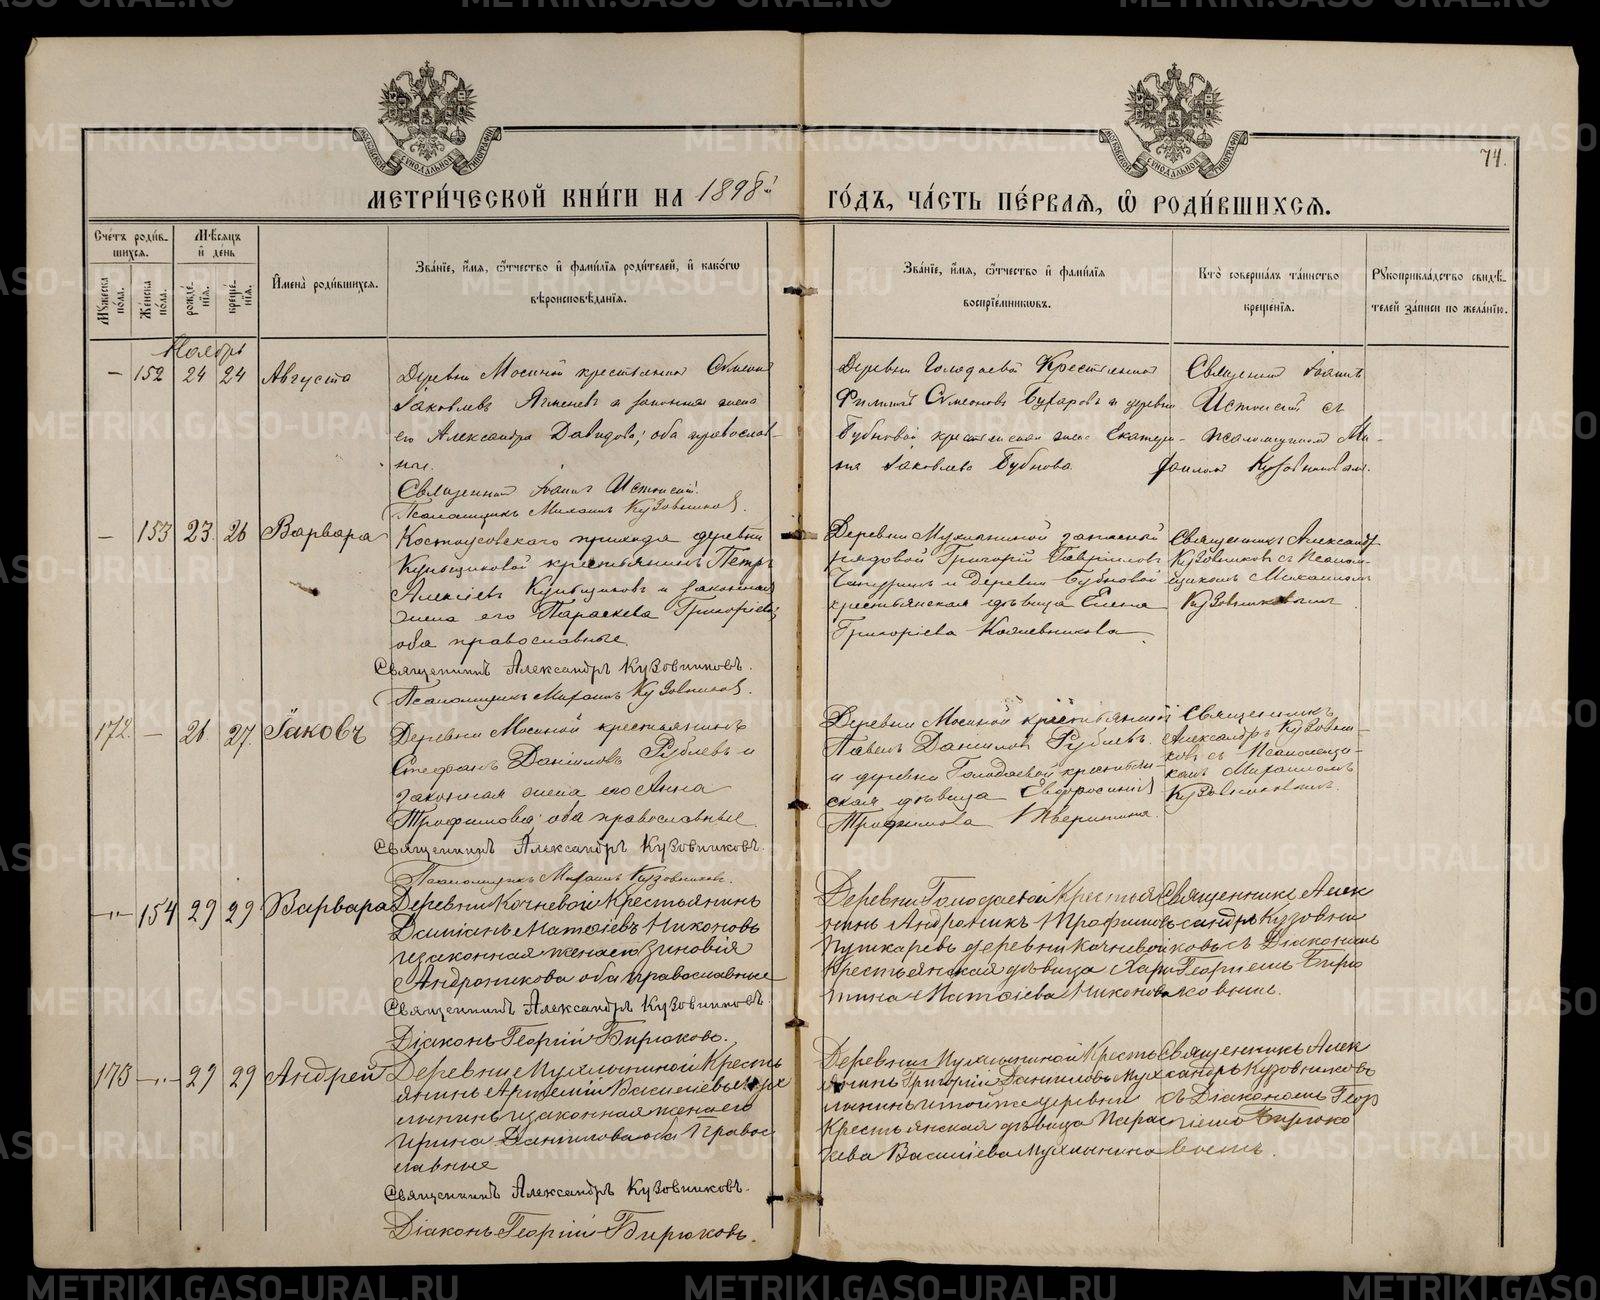 74.
МОСКОВСКОЙ СѴНОДАЛЬНОЙ ТИПОГРАФІИ
МЕТРИ́ЧЕСКОЙ КНИ́ГИ НА 1898й ГО́ДЪ, ЧА́СТЬ ПЕ́РВАЯ, Ѡ РОДИ́ВШИХСЯ.
Сче́тъ роди́вшихся.
Му́жеска по́ла.
Же́нска по́ла.
Мѣ́сяцъ и҆ де́нь
рожде́нїя.
креще́нїя.
И҆мена̀ роди́вшихся.
Зва́нїе, и҆́мя, ѻ҆́тчество и҆ фами́лїя роди́телей, и҆ како́гѡ
вѣроисповѣ́данїя.
Зва́нїе, и҆́мя, ѻ҆́тчество и҆ фами́лїя
воспрїе́мникѡвъ.
Кто̀ соверша́лъ та́инство
креще́нїя.
Рꙋкоприкла́дство свидѣ́-
телей за́писи по жела́нїю.
Ноябрь
— 152 24 24 Августа
Деревни Мосиной крестьянинъ Симеонъ
Іаковлевъ Ячменевъ и законная жена
его Александра Давидова; оба православ-
ные.
Священникъ Іоаннъ Истокскій.
Псаломщикъ Михаилъ Кузовниковъ.
Деревни Голодаевой Крестьянинъ
Филиппъ Симеоновъ Бухаровъ и деревни
Бубновой крестьянская жена Екатери-
на Іаковлева Бубнова.
Священникъ Іоаннъ
Истокскій съ
псаломщикомъ Ми-
хаиломъ Кузовниковымъ.
— 153 23 26 Варвара
Костоусовскаго прихода деревни
крестьянинъ Петръ
Алексіевъ и законная
жена его Параскева Григоріева;
оба православные.
Священникъ Александръ Кузовниковъ.
Псаломщикъ Михаилъ Кузовниковъ.
Деревни Мухлыниной запасный
рядовой Григорій Гавріиловъ
и деревни Бубновой
крестьянская дѣвица Елена
Григоріева Кожевникова.
Священникъ Александръ
Кузовниковъ съ Псалом-
щикомъ Михаиломъ
Кузовниковымъ
172. — 26 27. Іаковъ
Деревни Мосиной крестьянинъ
Стефанъ Даніиловъ Рублевъ и
законная жена его Анна
Трофимовна; оба православные.
Священникъ Александръ Кузовниковъ.
Псаломщикъ Михаилъ Кузовниковъ.
Деревни Мосиной крестьянинъ
Павелъ Даніиловъ Рублевъ
и деревни Голодаевой крестьян-
ская дѣвица Евфросинія
Трофимова
Священникъ
Александръ Кузовни-
ковъ съ Псаломщи-
комъ Михаиломъ
Кузовниковымъ.
—"— 154 29 29 Варвара
Деревни Кочневой Крестьянинъ
Даміанъ Матѳіевъ Никоновъ
и законная жена его Зиновія
Андроникова оба православные
Священникъ Александръ Кузовниковъ.
Діаконъ Георгій Бирюковъ.
Деревни Голодаевой Крестья
нинъ Андроникъ Трофимовъ
Пушкаревъ деревни Кочневой
Крестьянская дѣвица Хари
тина Матѳіева Никонова
Священникъ Алек
сандръ Кузовни
ковъ съ Діакономъ
Георгіемъ Бирю
ковымъ.
173 —"— 29 29 Андрей
Деревни Мухлыниной Кресть
янинъ Артемій Василіевъ Мух
лынинъ и законная жена его
Ирина Даніилова оба Право
славные
Священникъ Александръ Кузовниковъ.
Діаконъ Георгій Бирюковъ.
Деревни Мухлыниной Кресть
янинъ Григорій Даніиловъ Мух
лынинъ и той же деревни
Крестьянская дѣвица Парас
кева Василіева Мухлынина
Священникъ Алек
сандръ Кузовниковъ
съ Діакономъ Геор
гіемъ Бирюко
вымъ.
METRIKI.GASO-URAL.RU